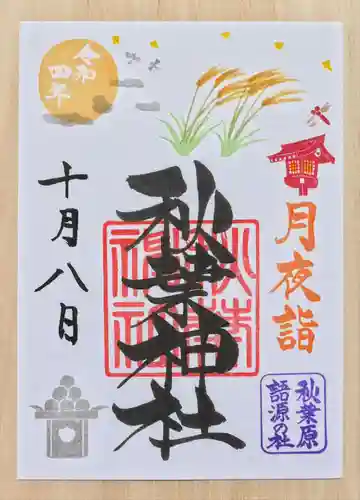 令和
四年
月夜詣
秋葉神社
十月八日
秋葉原
語源の社